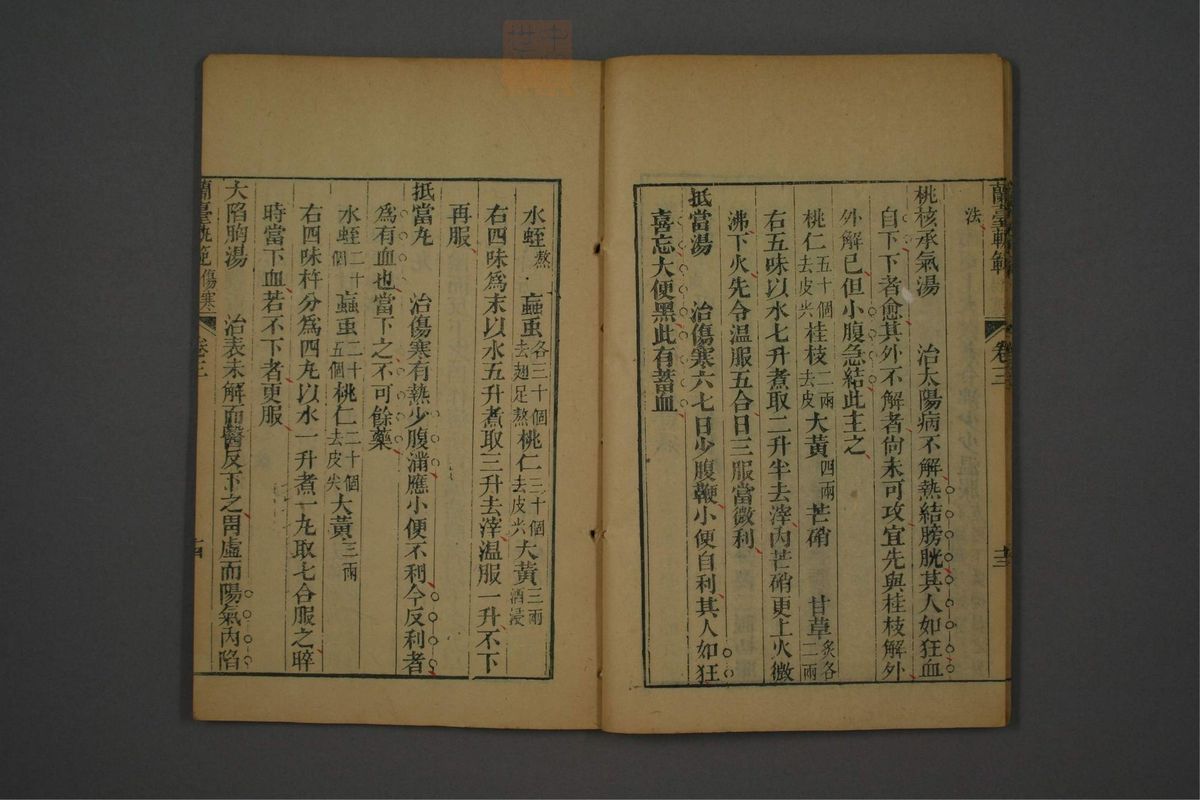 蘭臺軌範 卷三 十三
法
桃核承氣湯 治太陽病不解熱結膀胱其人如狂血
自下下者愈其外不解者尙未可攻宜先與桂枝解外
外解已但小腹急結此主之
桃仁五十個去皮尖桂枝二兩去皮大黃四兩芒硝 甘草炙各二兩
右五味以水七升煮取二升半去滓內芒硝更上火微
沸下火先令溫服五合日三服當微利
抵當湯 治傷寒六七日少腹鞕小便自利其人如狂
喜忘大便黑此有蓄血
水蛭熬 䗪虫各三十個去翅足熬桃仁三十個去皮尖大黃三兩酒浸
右四味爲末以水五升煮取三升去滓溫服一升不下
再服
抵當丸 治傷寒有熱少腹滿應小便不利今反利者
爲有血也當下之不可餘藥
水蛭二十個䗪虫二十五個桃仁二十個去皮尖大黃三兩
右四味杵分爲四丸以水一升煮一丸取七合服之晬
時當下血若不下者更服
大陷胸湯 治表未解而醫反下之胃虛而陽氣內陷
蘭臺軌範 傷寒 卷三 十四